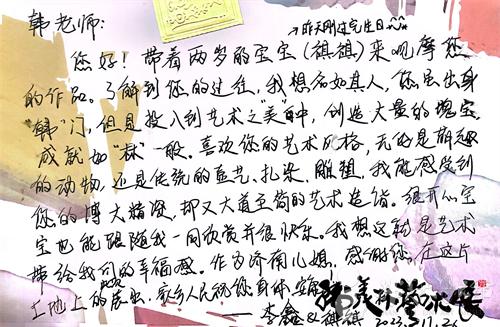 韩老师：
→昨天刚过完生日^^
您好！带着两岁的宝宝（祺祺）来观摩您
的作品。了解到您的过往，我想名如其人，您虽出身
"韩"门，但是投入到艺术之"美"中，创造大量的瑰宝，
成就如"林"一般。喜欢您的艺术风格，无论是
的动物，还是传统的 艺、扎染、雕塑，我能感受到
您的博大精深，却又大道至简的艺术造诣。很开心宝
宝也能跟随我一同欣赏并很快乐。我想这就是艺术
带给我们的幸福感。作为济南儿媳，感谢您在这片
土地上的 出，家乡人民祝您身体安康！
李鑫&祺祺
韩美林艺术展
2023.11.26